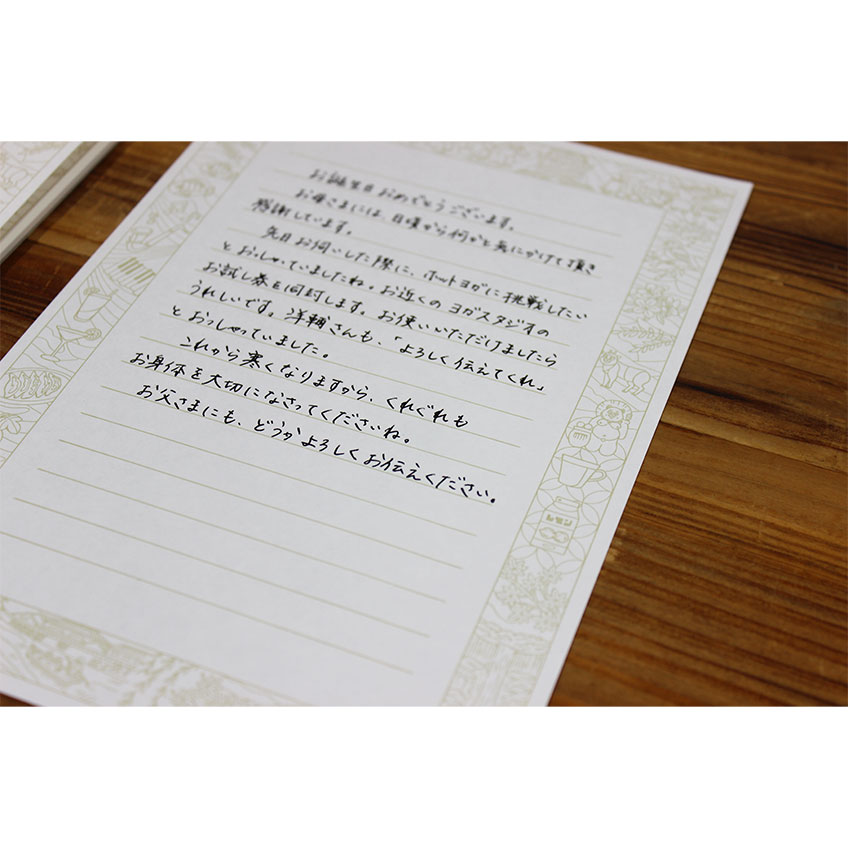 お誕生日おめでとうございます。
お母さまには、日頃から何かと気にかけて頂き
感謝しています。
先日お伺いした際に、ホットヨガに挑戦したい
とおっしゃっていましたね。お近くのヨガスタジオの
お試し券を同封します。お使いいただけましたら
うれしいです。洋輔さんも、「よろしく伝えてくれ」
とおっしゃっていました。
これから寒くなりますから、くれぐれも
お身体を大切になさってくださいね。
お父さまにも、どうかよろしくお伝えください。
レモン